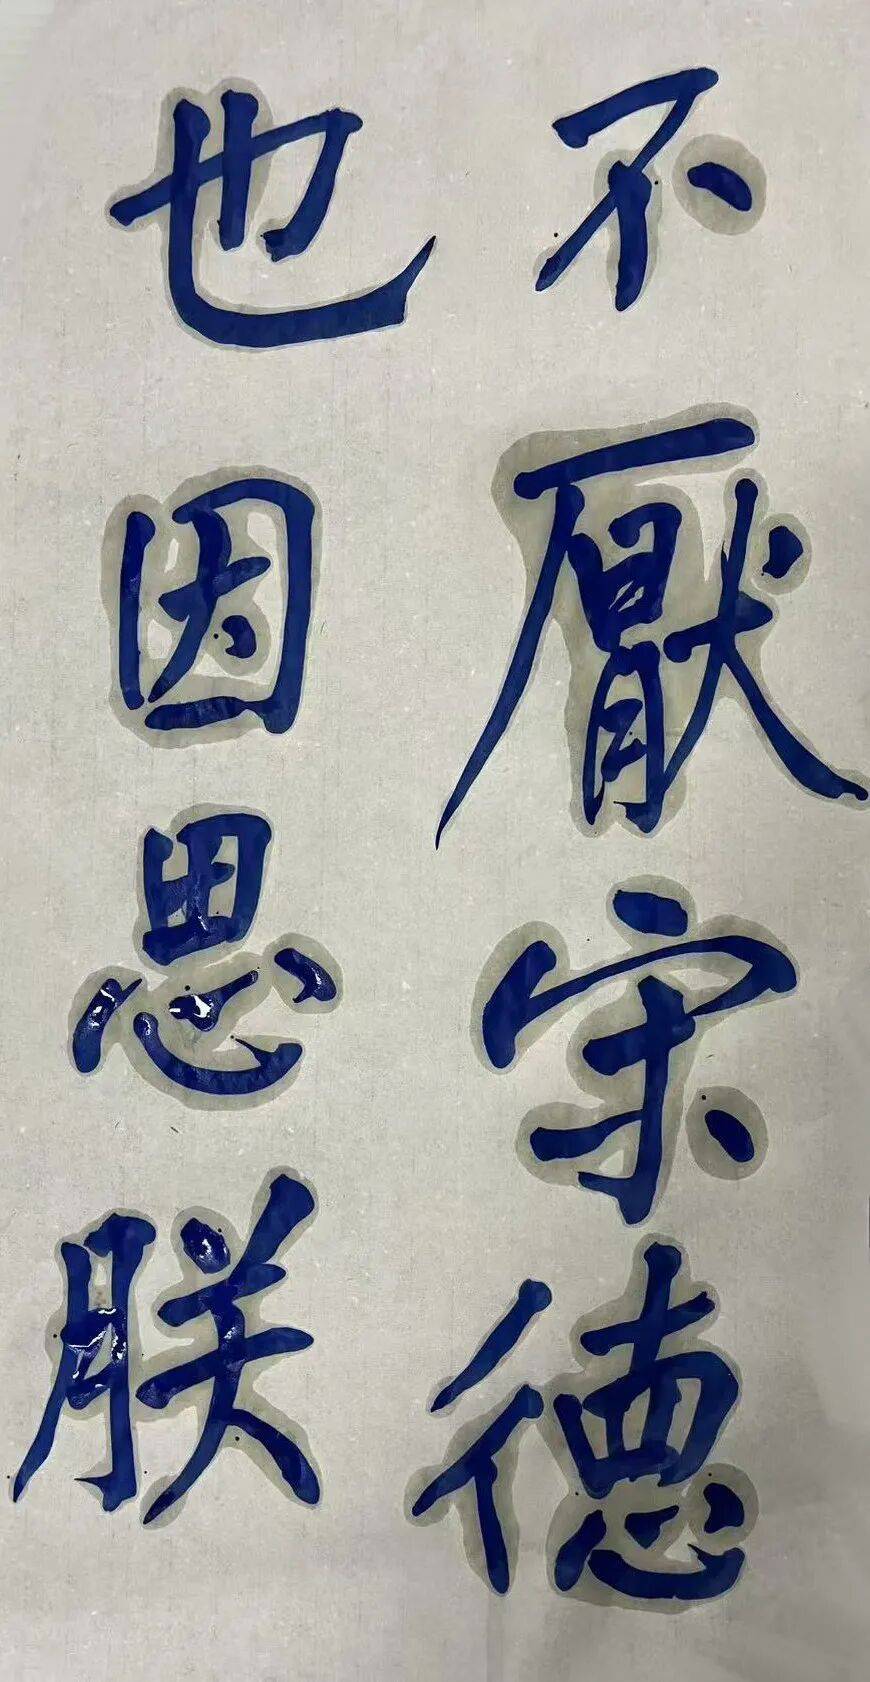 不厭宋德
也因思朕